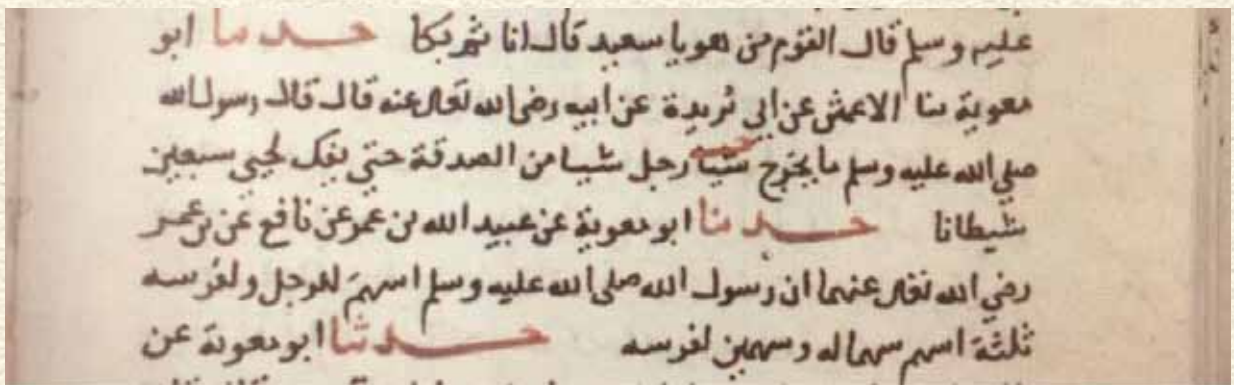 عليه وسلم قال القوم من هو يا سعيد قال انا ثم بكا حدثنا ابو
معوية ثنا الاعمش عن ابي بريدة عن ابيه رضي الله تعالى عنه قال قال رسول الله
صلي الله عليه وسلم ما يخرج شيئا رجل شيا من الصدقة حتي يفك لحيي سبعين
شيطانا حدثنا ابو معوية عن عبيد الله بن عمر عن نافع عن بن عمر
رضي الله تعالى عنهما ان رسول الله صلى الله عليه وسلم اسهم للرجل ولفرسه
ثلثة اسهم سهما له وسهمين لفرسه حدثنا ابو معوية عن